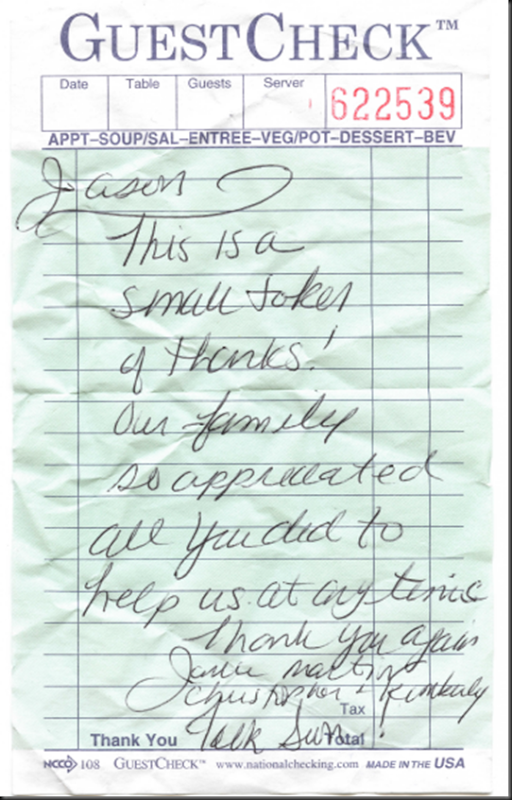 GUESTCHECK™
Date Table Guests Server
622539
APPT–SOUP/SAL–ENTREE–VEG/POT–DESSERT–BEV
Jason
This is a
small token
of thanks!
Our family
so appreciated
all you did to
help us at any time
Thank you again
Martin
Christopher & Kimberly
Tax
Thank You Talk Total
NCCO 108 GUESTCHECK™ www.nationalchecking.com MADE IN THE USA